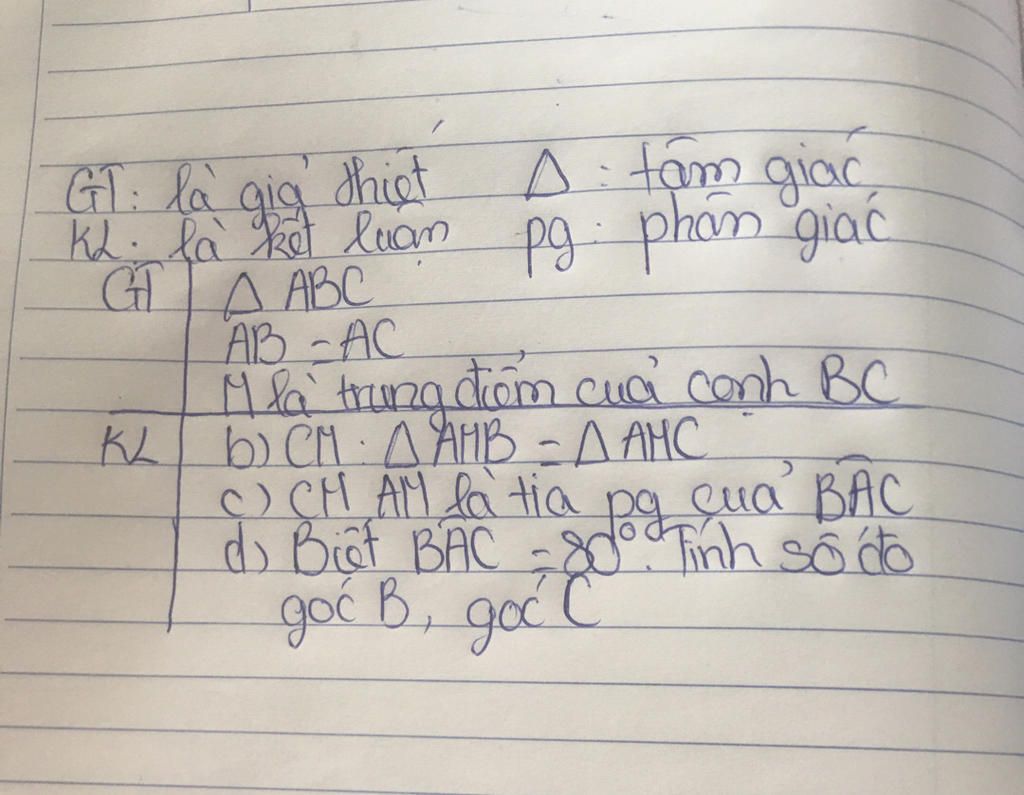 GT: là giả thiết Δ: tâm giác
KL: là kết luận pg: phân giác
GT Δ ABC
AB = AC
M là trung điểm cuả cạnh BC
KL b) CM: Δ AMB = Δ AMC
c) CM AM là tia pg cuả BÂC
d) Biết BÂC = 80°. Tính số đo
goć B, goć C